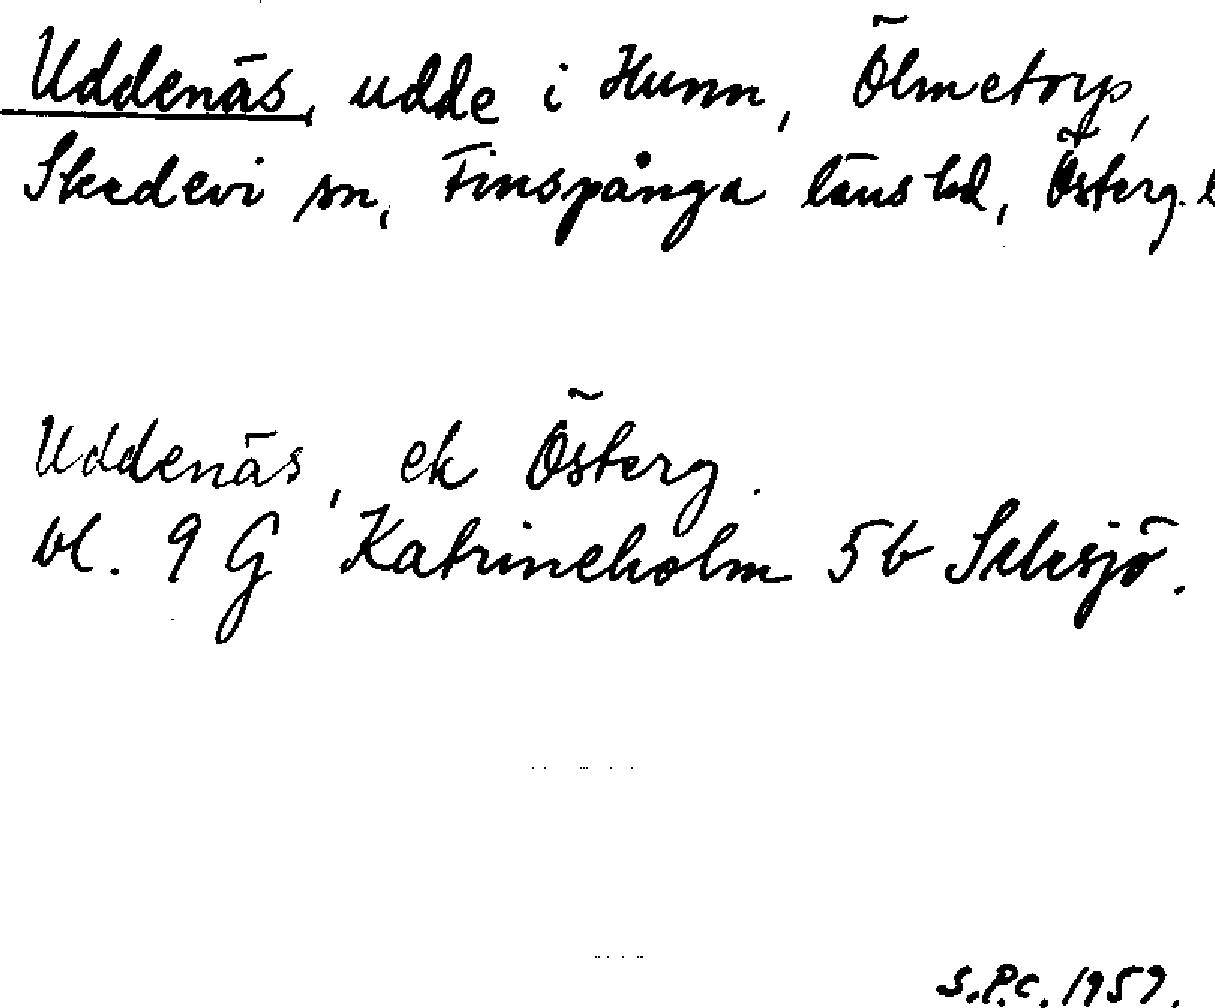 Uddenäs, udde i Hunn, Ölmetorp,
Skedevi sn, Finspånga läns hd, Österg. l
Uddenäs, ek Österg.
bl. 9 G Katrineholm 5b
S.P.C. 1959.